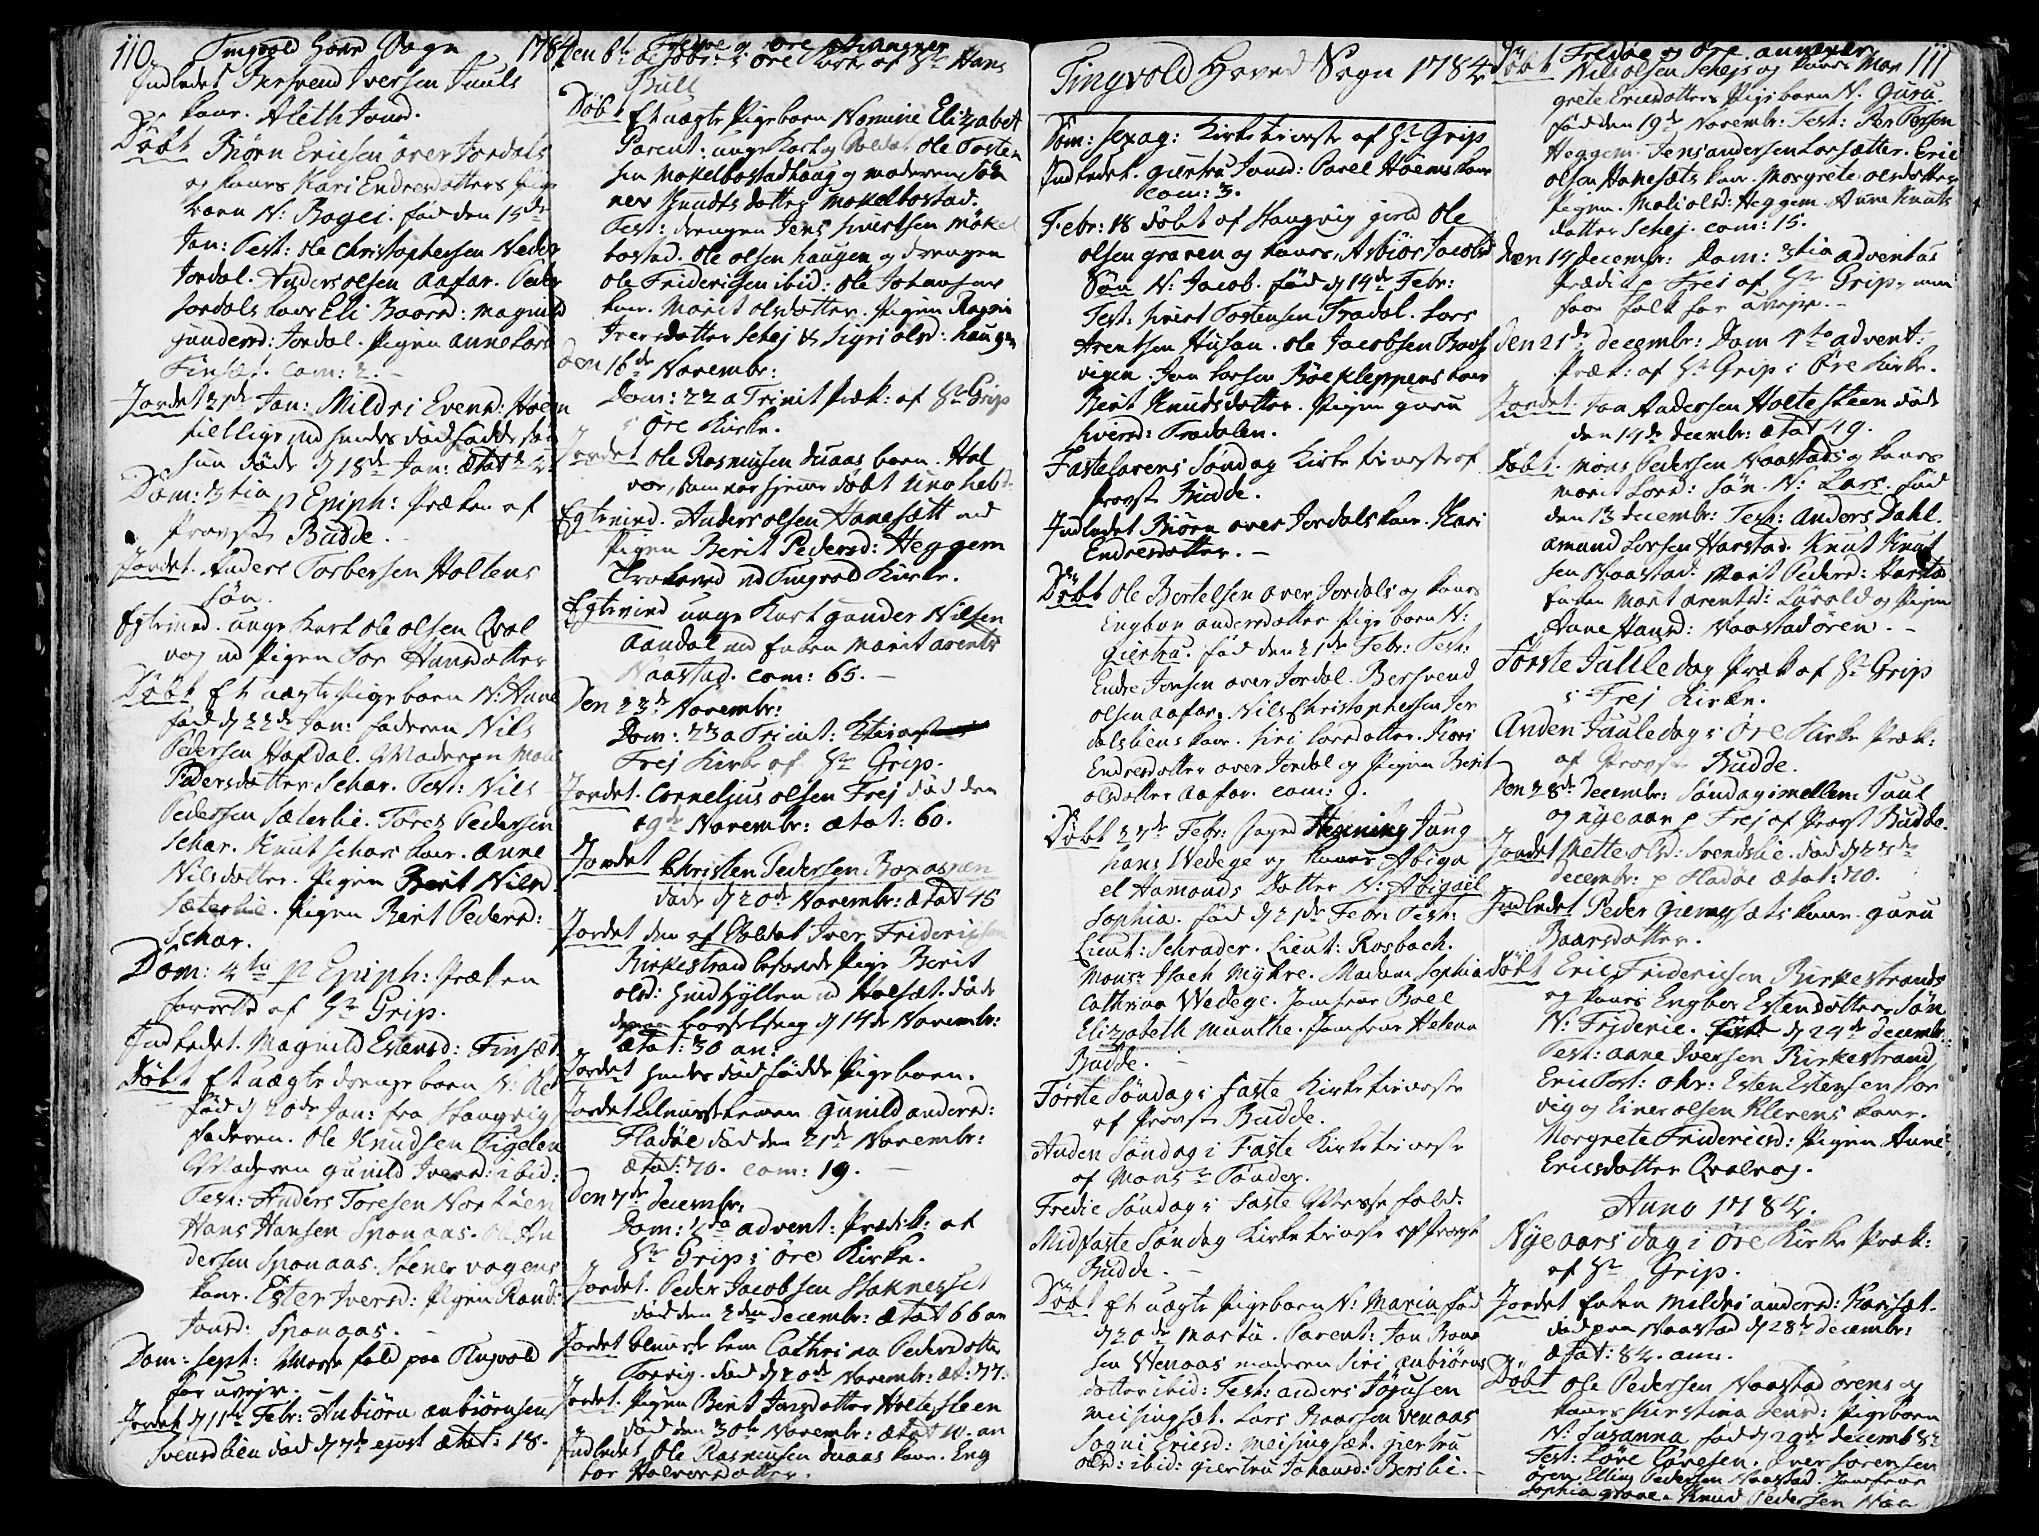 110. Tingvold Hoved Sogn 1784
Indledet Bersvend Iversen Juuls
kone. Aleth Jonsd.
Døbt Biørn Ericsen over Jordals
og kones Kari Endresdatters Pige
barn N: Bagei. fød den 15de
Jan: Test: Ole Christophersen Neder
Jordal. Anders olsen Aafar. Peder
Jordals kone Eli Baarsd: Magnild
gundersd: Jordal. Pigen Anne Lars
Finsæt. com: 2.
Jordet 21de Jan: Mildri Evensd: Hoem
tillige med hendes dødfødde
døde d 18de Jan: Ætat
Dom: 3tia p Epiph: Præken af
Provst Budde.
Jordet. Anders Torbersen Holtens
Søn.
Egtevied. unge Karl Ole olsen Qval
vog med Pigen Hansdatter
Døbt Et uægte Pigebarn N: Anne
fød d 22de Jan: faderen Nils
Pedersen Hafdal. Moderen
Pedersdatter Schar. Test: Nils
Pedersen Sæterlie. Tores Pedersen
Schar. Knut Schars kone. Anne
Nilsdatter. Pigen Berit Nilsd.
Sæterlie. Pigen Berit Pedersd:
Schar.
Dom: 4ta p Epiph: Præken
af Hr Grip.
Indledet. Magnild Estensd: Finsæt.
Døbt Et uægte drengebarn N: Ole
fød d 20de Jan: fra Stangvig
Faderen. Ole Knudsen
Moderen Gunild Iversd: ibid:
Test: Anders Toresen
Hans Hansen Sponaas. Ole An
dersen Sponaas. Stener vagens
kone. Ester Iversd: Pigen Rand:
Jonsd: Sponaas.
Dom: Sept: Messe fald paa Tingvold
for uvejr.
Jordet d 11te Febr: Anbiørn anbiørnsen
Svendslien død d 7de ejusd ætat: 18.

Fredøe og Øre annexer
Den 6te Octobr: i Øre
Bull
Døbt Et uægte Pigebarn Nomine Elizabet
Parent: unge Karl og Soldat Ole Tosten
sen Mokelbostadhaug og moderen
Knudts datter Mokelbostad.
Test: drengen Jens Sivertsen Møkel
bostad. Ole olsen haugen og drengen
Ole Fridericsen ibid: Ole Johansens
kone. Marit olsdatter. Pigen Ragni
Iversdatter Schej & Sigri olsd: haugen
Den 16de Novembr:
Dom: 22 a Trinit Præk: af Hr Grip
i Øre Kirke.
Jordet Ole Rasmusen duaas barn. Hal
vor, som var hjemme døbt una hebd:
Egtevied. Anders olsen Hanesætt med
Pigen Berit Pedersd: Heggem
Troloved ved Tingvold Kirke.
Egtevied unge Karl gunder Nilsen
Aandal med Enken Marit arents
Naastad. com: 65.
Den 23de Novembr:
Dom: 23 a Trinit:
Frej Kirke af Hr Grip.
Jordet. Cornelius olsen Frej død den
19de Novembr: ætat: 60.
Jordet Christen Pedersen Boxaspen
døde d 20de Novembr: ætat 45
Jordet den af Soldat Iver Fridericsen
Birkestrand besovede Pige Berit
olsd: hindhyllen ved Halsæt. døde
barselseng d 14de Novembr:
Ætat: 30 an:
Jordet hendes dødfødde Pigebarn.
Jordet Almisselemen Gunild andersd:
Fladøe død den 21de Novembr:
ætat: 70. com: 19.
Den 7de Decembr:
Dom: 2da advent: Prædik: af
Hr Grip i Øre Kirke.
Jordet. Peder Jacobsen Staknesset
død den 2den Decembr: ætat 66 an
Jordet. Almisselem Cathrina Pedersdatter
Torvig. død d 20de Novembr: æt: 77.
Jordet. Pigen Berit Jonsdatter Holtesteen
død den 30te Novembr: ætat 10. an
Indledet. Ole Rasmusen duaas kone. Eng
bor Halvorsdatter.

Tingvold Hoved Sogn 1784
Dom: Sexag: Kirketieneste af Hr Grip
Indledet. giertru Jonsd: Povel Høems kone
com: 3.
Febr: 18 døbt af Stangvig gield Ole
olsen graven og kones Asbiør Jacobsd
Søn N: Jacob. fød d 14de Febr:
Test: Sivert Tostensen Fradal. Lars
Arentsen Husan. Ole Jacobsen
vigen. Jon Larsen Bøekleppens kone
Berit Knudsdatter. Pigen guru
Siversd: Fradalen.
Fastelavens Søndag Kirketieneste af
Provst Budde.
Indledet Biørn over Jordals kone. Kari
Endresdatter.
Døbt Ole Bertelsen over Jordals og kones
Engbor andersdatter Pigebarn N:
Giertru. fød den 21de Febr: Test:
Endre Jonsen over Jordal. Bersvend
olsen aafar. Nils Christophersen Jor
dalsliens kone. Siri Larsdatter. Kari
Endresdatter over Jordal og Pigen Berit
olsdatter Aafar. com: 9.
Døbt 27de Febr: Henning Jung
hans Wedege og kones Abiga
el Hamonds Datter N: Abigael
Sophia. fød d 21de Febr: Test:
Lieut: Schrader. Lieut: Rosbach.
Monsr Isach Myhre. Madam Sophia
Cathrina Wedege. Jomfrue Boel
Elizabeth Munthe. Jomfrue Helena
Budde.
Første Søndag i faste Kirketieneste
af Provst Budde.
Anden Søndag i Faste Kirketieneste
af Monsr Tønder.
Tredie Søndag i Faste Messefald.
Midfaste Søndag Kirketieneste af Provst
Budde.
Døbt Et uægte Pigebarn N: Maria fød
d 20de Martii. Parent: Jon
sen Wenaas moderen Siri anbiørns
datter ibid: Test: anders Jørusen
Meisingsæt. Lars Baarsen Venaas
Sogni Ericsd: Meisingsæt. giertru
olsd: ibid: giertru Johansd: Berslie.

Fredøe og Øre annexer 111
Døbt Nils olsen Schejs og kones Mar
grete Ericsdatters Pigebarn N: Guru.
fød den 19de Novembr: Test: Peer
Heggem. Jens andersen Lorsætter. Eric
olsen Hanesæts kone. Morgrete olsdatter
Pigen. Mali olsd: Heggem. Anne Knuts
datter Schej. com: 15.
Den 14 Decembr: Dom: 3tia adventus
Prædik p Frej af Hr Grip, men
faae folk for uvejr.
Den 21de Decembr: Dom 4ta advent:
Præk: af Hr Grip i Øre Kirke.
Jordet. Jon Andersen Holtesteen døde
den 14de Decembr: ætat 49.
Døbt. Mons Pedersen Naastads og kones
Marit Larsd: søn N: Lars. fød
den 13 Decembr: Test: Anders Dahl.
Amund Larsen Harstad. Knut Knut
sen Naastad. Marit Pedersd: Harstad
Enken Marit arentsd: og Pigen
Anne Hansd: Naastadøren.
Første Julledag Præk af Hr Grip
i Frej Kirke.
Anden Juuledag i Øre Kirke Præk:
af Provst Budde.
Den 28de Decembr: Søndag imellem Juul
og nye aar p Frej af Provst Budde.
Jordet Mette olsd: Svendslie. død d 23de
Decembr: p Fladøe ætat: 70.
Indledet Peder kone. guru
Baarsdatter.
Døbt Eric Fridericsen Birkestrands
og kones Engbor Estensdatters Søn
N: Frideric. fød d 24de Decembr:
Test: Anne Iversen Birkestrand
Eric Esten Estensen Stor
vig og Einer olsen Klevens kone.
Morgrete Fridericsd: Pigen Anne
Ericsdatter Qvalvog.
Anno 1784.
Nyeaarsdag i Øre Kirke Præk:
af Hr Grip.
Jordet Enken Mildri andersd: Karisæt.
død paa Naastad d 28de Decembr:
ætat: 84. ann.
Døbt Ole Pedersen Naastadørens og
kones Kirstina Jensd: Pigebarn
N: Susanna fød d 29de Decemb 83
Test: Løre Lønesen. Iver Sørensen
Øren. Elling Pedersen Naastad. Jomfrue
Sophia Grove. Knud Pedersen Naa